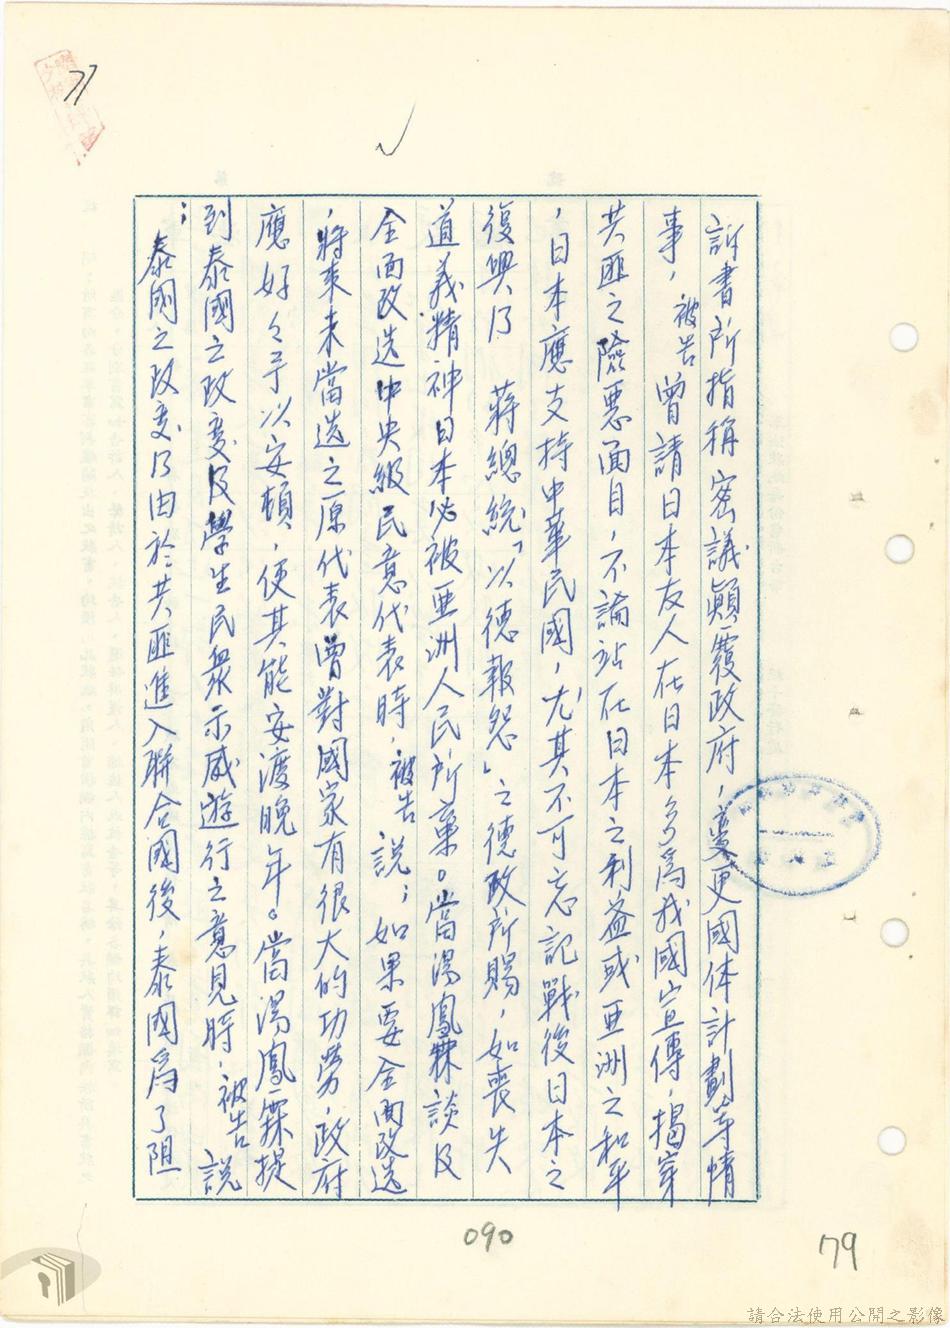 77
訴書所指稱密議顛覆政府,變更國体計劃等情
事,被告曾請日本友人在日本多為我國宣傳,揭穿
共匪之險惡面目,不論站在日本之利益或亞洲之和平
,日本應支持中華民國,尤其不可忘記戰後日本之
復興乃 蔣總統「以德報怨」之德政所賜,如喪失
道義精神日本必被亞洲人民所棄。當湯鳳霖談及
全面改造中央級民意代表時,被告說;如果要全面改造
,將來未當選之原代表曾對國家有很大的功勞,政府
應好々予以安頓,使其能安渡晚年。當湯鳳霖提
到泰國之政变及學生民眾示威遊行之意見時,被告說
:泰國之政变乃由於共匪進入聯合國後,泰國為了阻
090
79
請合法使用公開之影像